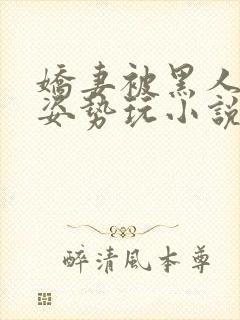 嬌妻被黑人
姿勢玩小說
醉清風本尊